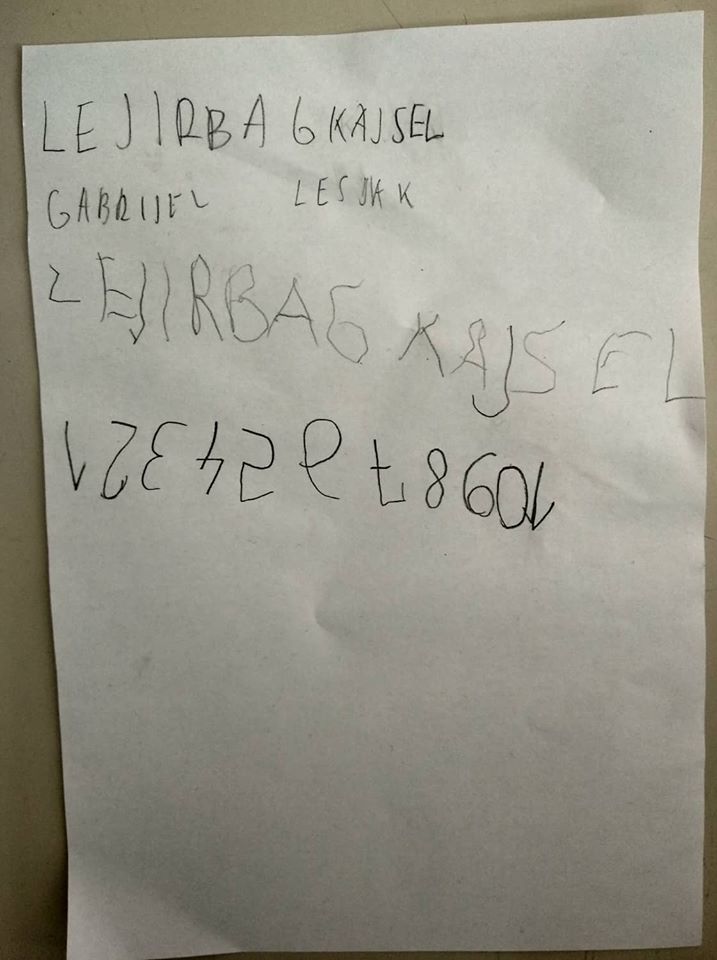 LEJIRBAG KAJSEL
GABRIJEL LESJAK
LEJIRBAG KAJSEL
12345678910